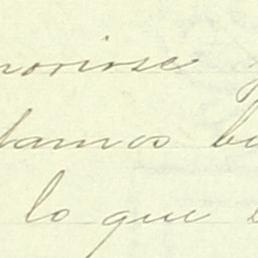 morirse
tamos bu
lo que